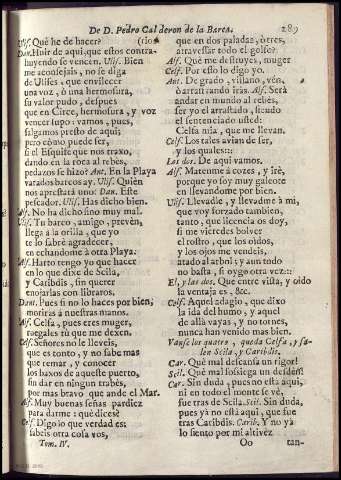 De D. Pedro Calderon de la Barca. 289
Ulis. Què he de hazer? (rio
Dan. Huir de aqui, que estos contra-
luyendo se vencen. Ulis. Bien
me aconsejais, no se diga
de Ulises, que envilecer
una voz, ò una hermosura,
su valor pudo, despues
que en Circe, hermosura, y voz
vencer supo; vamos, pues,
salgamos presto de aqui;
pero còmo puede ser,
si el Esquife que nos traxo,
dando en la roca al rebès,
pedazos se hizo? Ant. En la Playa
varados barcos ay. Ulis. Quièn
nos aprestarà uno? Dan. Este
pescador. Ulis. Has dicho bien.
Alf. No ha dicho sino muy mal.
Ulis. Tu barco, amigo, prevèn,
llega à la orilla, que yo
te lo sabrè agradecer,
en echandome à otra Playa.
Alf. Harto tengo yo que hacer
en lo que dixe de Scila,
y Caribdis, sin querer
enojarlas con libraros.
Dant. Pues si no lo haces por bien,
moriràs à nuestras manos.
Alf. Celfa, pues eres muger,
ruegales tù que me dexen.
Celf. Señores no le lleveis,
que es tonto, y no sabe mas
que remar, y conocer
los baxos de aqueste puerto,
sin dar en ningun trabès,
por mas bravo que ande el Mar.
Alf. Muy buenas señas pardiez
para darme: què dices?
Celf. Digo lo que verdad es:
sabeis otra cosa vos,
Tom. IV.
que en dos paladas, ò tres,
atravessar todo el golfo?
Alf. Què me destruyes, muger
Celf. Por esso lo digo yo.
Ant. De grado, villano, vèn,
ò arrastrando iràs. Alf. Serà
andar en mundo al rebès,
ser yo el arrastado, siendo
el sentenciado usted:
Celfa mia, que me llevan.
Celf. Los tales avian de ser,
y los quales:::
Los dos. De aqui vamos.
Alf. Matenme à cozes, y irè,
porque yo soy muy galeote
en llevandome por bien.
Ulis. Llevadle, y llevadme à mi,
que voy forzado tambien,
tanto, que licencia os doy,
si me vieredes bolver
el rostro, que los oidos,
y los ojos me vendeis,
atado al arbol; y aun todo
no basta, si oygo otra vez:::
El, y las dos. Que entre vista, y oido
la ventaja es, &c.
Celf. Aquel adagio, que dixo
la ida del humo, y aquel
de allà vayas, y no tornes,
nunca han venido mas bien.
Vanse los quatro, queda Celfa, y sa-
len Scila, y Caribdis.
Car. Què mal descansa un rigor!
Scil. Què mal sossiega un desdèn!
Car. Sin duda, pues no està aqui,
ni en todo el monte se vè,
fue tras de Scila. Scil. Sin duda,
pues yà no està aqui, que fue
tras Caribdis. Carib. Y no yà
lo siento por mi altivèz
Oo tan-